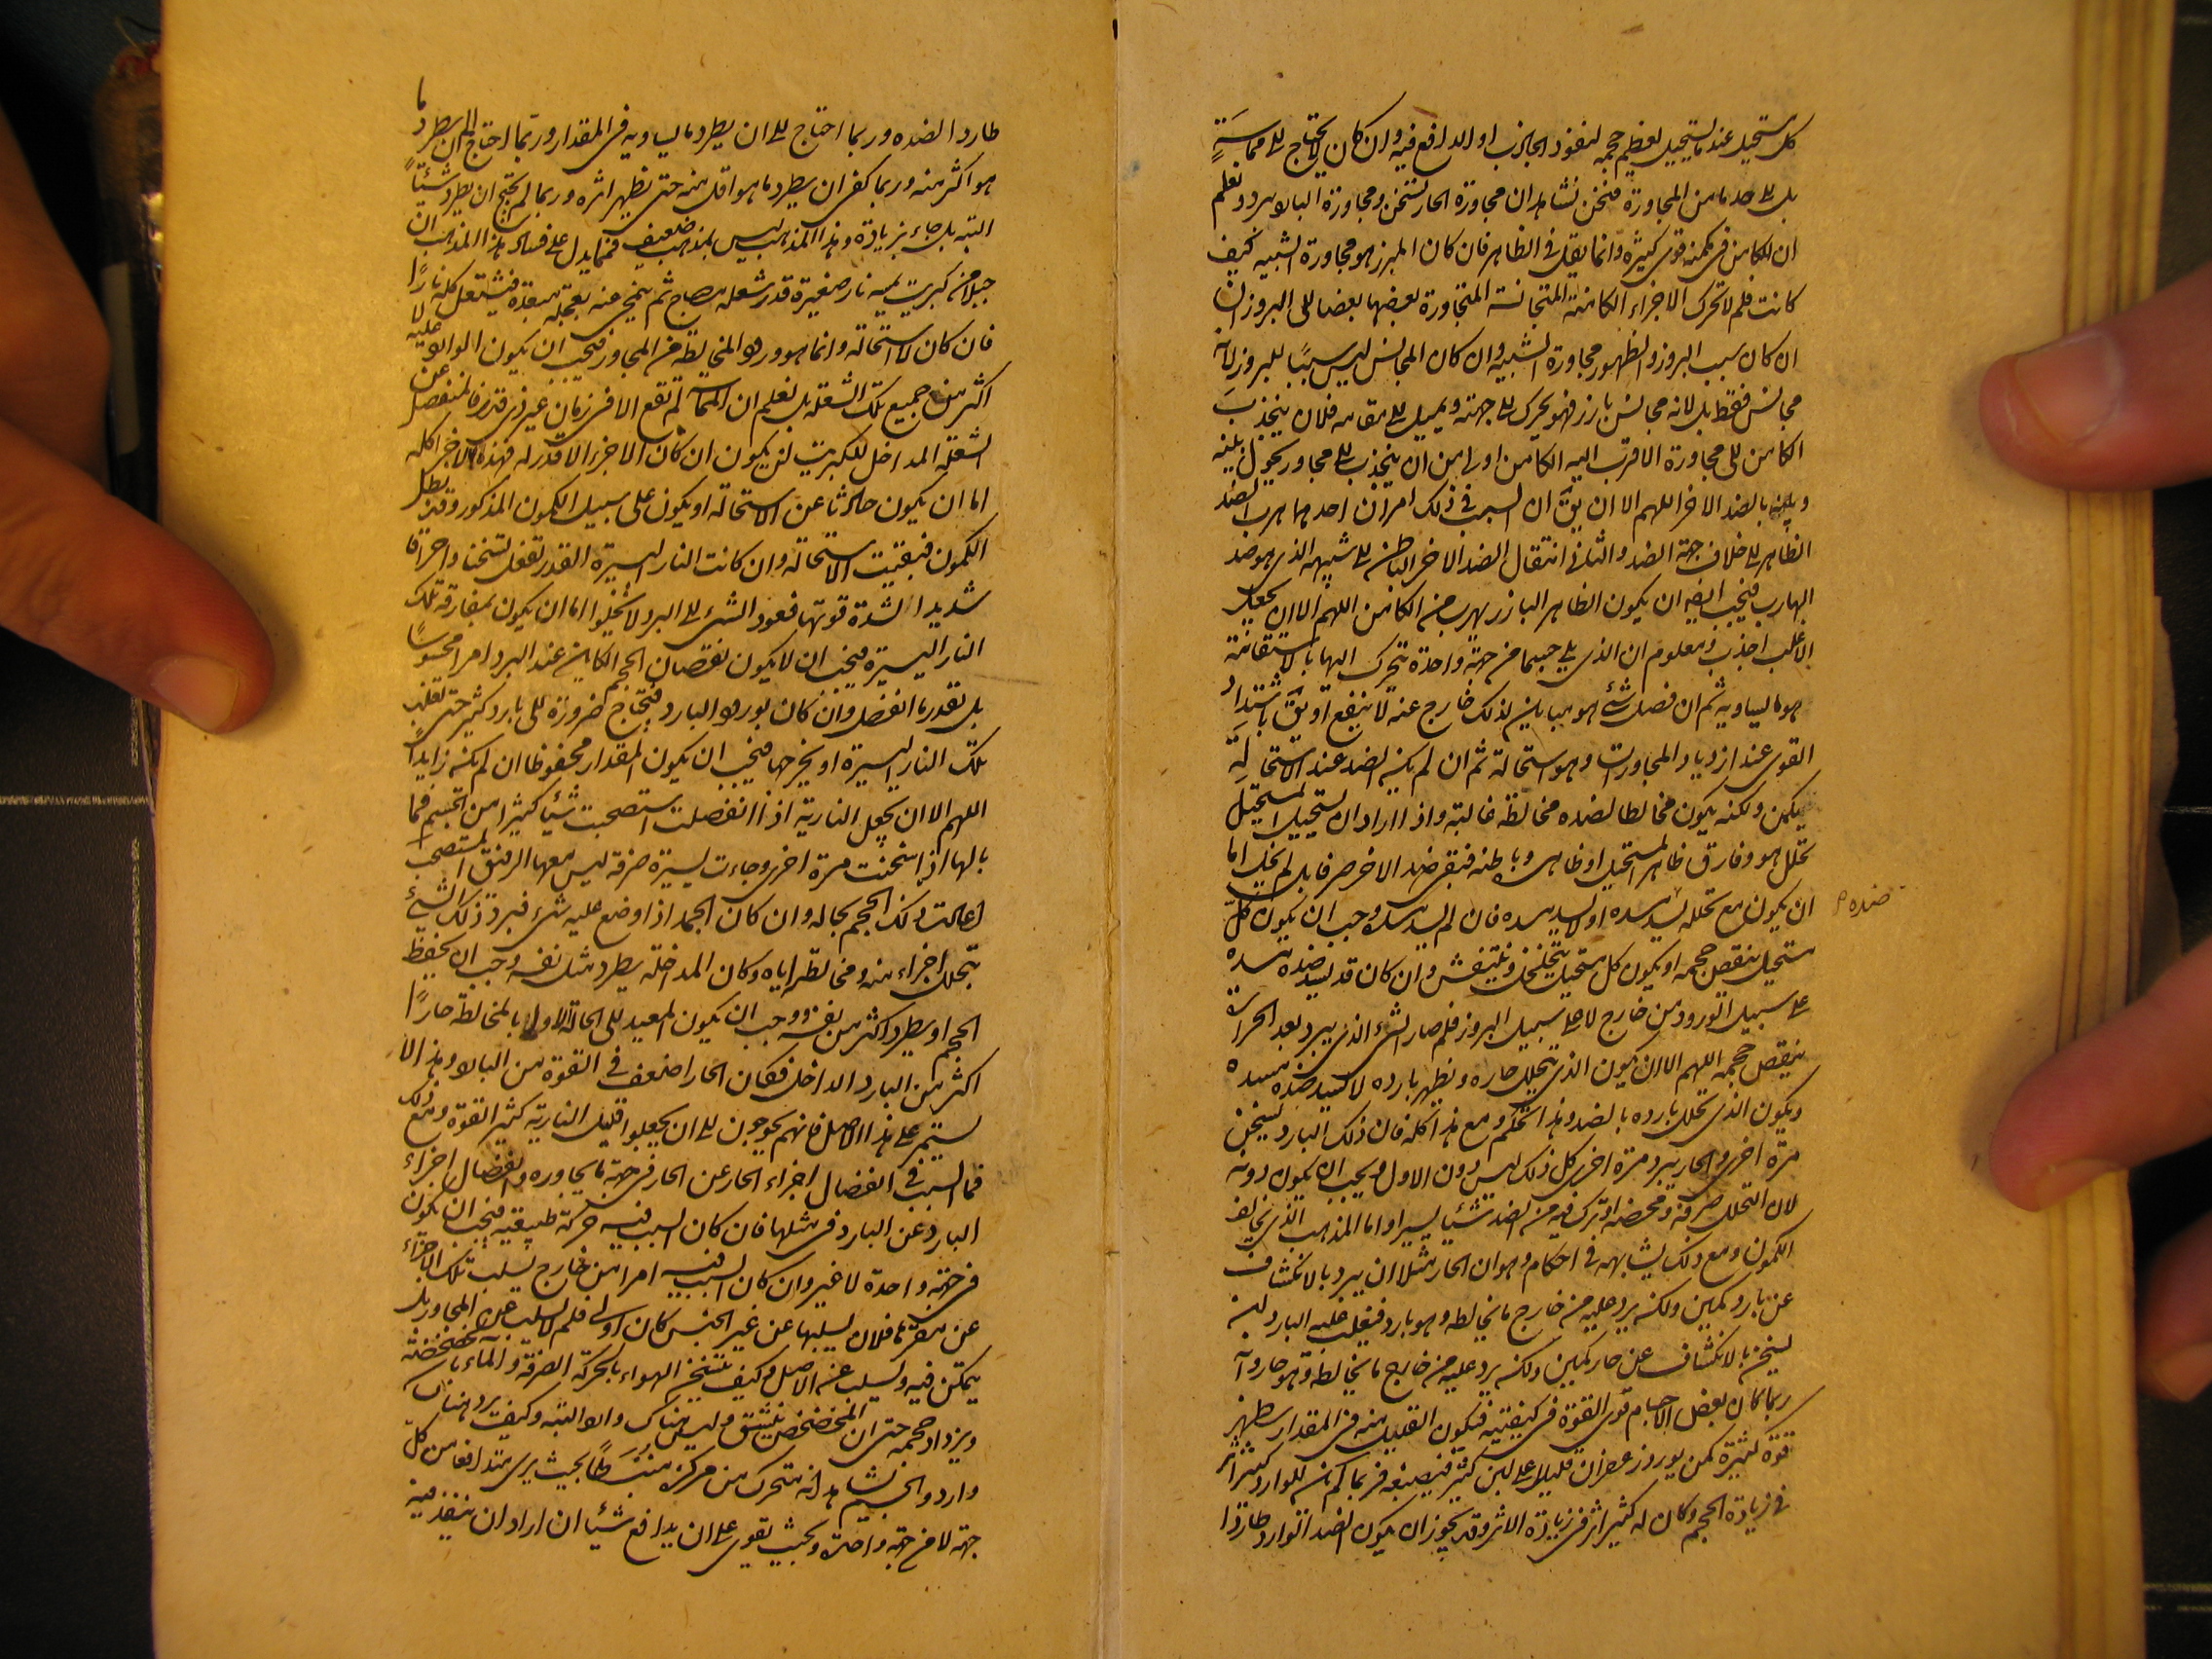 كل مستحيل عند ما يستحيل يعظم حجمه لنفوذ الجاذب او الدافع فيه وان كان لا يحتاج الى مماسة
بل الى حد ما من المجاورة فنحن نشاهد ان مجاورة الحار تسخن ومجاورة البارد تبرد ونعلم
ان الكامن فى كمنه قوى كثيرة وانما يقل فى الظاهر فان كان المبرز هو مجاورة الشبيه كيف
كانت فلم لا تحرك الاجزاء الكامنة المتجانسة المتجاورة بعضها بعضا الى البروز ان
ان كان سبب البروز والظهور مجاورة الشبيه وان كان المجانس ليس سببًا للبروز لانه
مجانس فقط بل لانه مجانس بارز فهو يحرك الى جهته ويميل الى مقامه فلان ينجذب
الكامن الى مجاورة الاقرب اليه الكامن اولى من ان ينجذب الى مجاور يحول بينه
وبينه بالضد الاخر اللهم الا ان يقَ ان السبب فى ذلك امران احدهما هرب الضد
الظاهر الى خلاف جهة الضد والثانى انتقال الضد الاخر الباطن الى شبيهه الذى هو ضد
الهارب فيجب ايضه ان يكون الظاهر البارز يهرب من الكامن اللهم الا ان يجعل
الاغلب اجذب ومعلوم ان الذى يلى جسما من جهة واحدة تتحرك اليها بالاستقامة
هو ما يساويه ثم ان فصل شئ هو مباين لذلك خارج عنه لا ينفع او يقَ باشتداد
القوى عند ازدياد المجاورات وهو استحالة ثم ان لم يكن الضد عند الاستحالة
يكمن ولكنه يكون مخالطا لضده مخالطة غالبة واذا اراد ان يستحيل المستحيل
تحلل هو وفارق ظاهر المستحيل او ظاهره وباطنه فبقى ضده الاخر صرفا بل لم يخل اما
ان يكون مع تحلله يسد مسده او لا يسد مسده فان لم يسد مسده وجب ان يكون كل
ضده
مستحيل ينقص حجمه او يكون كل مستحيل يتخلخل وينتفش وان كان قد يسد ضده مسده
على سبيل الورود من خارج لا على سبيل البروز فلم صار الشئ الذى يبرد بعد الحرارة
ينقص حجمه اللهم الا ان يكون الذى يتحلل حاره ويظهر بارده لا يسد ضده مسده
ويكون الذى تحلل بارده بالضد وهذا تحكم ومع هذا كله فان ذلك البارد يسخن
مرة اخرى والحار يبرد مرة اخرى كل ذلك ليس دون الاول ويجب ان يكون دونه
لان التحلل صرفه ومحضه او ترك فيه من الضد شيئا يسيرا واما المذهب الذى يخالف
الكمون ومع ذلك يشابهه فى احكام وهو ان الحار مثلا ان يبرد بالانكشاف
عن بارد كمين ولكنه يرد عليه من خارج ما يخالطه وهو بارد فيغلب عليه البارد ليس
يسخن بالانكشاف عن حار كمين ولكنه يرد عليه من خارج ما يخالطه وهو حار وانه
ربما كان بعض الاجسام قوى القوة فى كيفيته فيكون القليل منه فى المقدار يظهر
قوة كثيرة كمن يورد زعفران قليلا على لبن كثير فيصبغه فربما لم يكن للوارد كثير اثر
فى زيادة الحجم وكان له كثير اثر فى زيادة الاثر وقد يجوز ان يكون الضد الوارد طاردا
طاردا لضده وربما احتاج الى ان يطرد ما يساويه فى المقدار وربما احتاج الى ان يطرد ما
هو اكثر منه وربما كفى ان يطرد ما هو اقل منه حتى يظهر اثره وربما لم يحتج ان يطرد شيئًا
البتة بل جاء بزيادة وهذا المذهب ليس بمذهب ضعيف فمما يدل على فساد هذا المذهب ان
جبلا من كبريت يمسه نار صغيرة قدر شعلة مصباح ثم ينحى عنه بعجلة مبعدة فيشتعل كله نارًا
فان كان لا استحالة وانما هو ورود المخالطة من المجاور فيجب ان يكون الوارد عليه لا
اكثر من جميع تلك الشعلة بل نعلم ان المماسة لم تقع الا فى زمان غير ذى قدر فالمنفصل عن
الشعلة المداخل للكبريت لن يكون ان كان الا جزء لا قدر له فهذه الاجزا كله
اما ان يكون حادثا عن الاستحالة او يكون على سبيل الكمون المذكور وقد بطل
الكمون فبقيت الاستحالة وان كانت النار اليسيرة القدر تفعل تسخنا واحراقا
شديدا لشدة قوتها فعود الشئ الى البرد لا يخلوا اما ان يكون بمفارقة تلك
النار اليسيرة فيجب ان لا يكون نقصان الحجم الكاين عند البرد امرا محسوسًا
بل بقدر ما انفصل وان كان بورود البارد فيحتاج ضرورة الى بارد كثير حتى تغلب
تلك النار اليسيرة او يخرجها فيجب ان يكون المقدار محفوظا ان لم يكن زايدًا
اللهم الا ان يجعل النارية اذا انفصلت استصحبت شيئا كثيرا من الجسم فما
بالها اذا سخنت مرة اخرى وجاءت يسيرة صرفه ليس معها الرفيق المستصحب
اعادت ذلك الحجم بحاله وان كان الجمد اذا وضع عليه شئ فبرد ذلك الشئ
بتحلل اجزاء منه ومخالطة اياه وكان المداخلة يطرد مثل نفسه وجب ان يحفظ
الحجم او يطرد اكثر من نفسه ووجب ان يكون المعيد الى الحالة الاولى بالمخالطة حارًا
اكثر من البارد الداخل فكان الحار اضعف فى القوة من البارد وهذا لا
يستمر على هذا الاصل فانهم يحوجون الى ان يجعلوا قليل النارية كثير القوة ومع ذلك
فما السبب فى انفصال اجزاء الحار عن الحار فى جهة ما يجاوره وانفصال اجزاء
البارد عن البارد فى مثلها فان كان السبب فيه حركة طبيعية فيجب ان يكون
فى جهة واحدة لا غير وان كان السبب فيه امرا من خارج يسلب تلك الاجزاء
عن مقرها فلان يسلبها عن غير الجنس كان اولى فلم لا يسلب عن المجاور بل
يتمكن فيه ويسلب عنه الاصل وكيف يتسخن الهواء بالحركة الصرفة والماء بالخضخضة
ويزداد حجمه حتى ان المخضخض ينشق وليس هناك وارد البتة وكيف يرد هناك
وارد والجسم يشاهد انه متحرك من مركزه منبسطًا بحيث يرى متدافعا من كلّ
جهة لا من جهة واحدة وبحيث يقوى على ان يدافع شيئا ان اراد ان ينفذ فيه